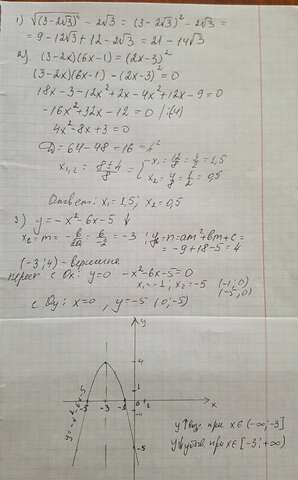 1) √(3-2√3)² - 2√3 = (3-2√3)² - 2√3 =
= 9-12√3+12-2√3 = 21-14√3
2) (3-2x)(6x-1) = (2x-3)²
(3-2x)(6x-1) - (2x-3)² = 0
18x-3-12x²+2x-4x²+12x-9=0
-16x²+32x-12=0 /:(-4)
4x²-8x+3=0
D=64-48=16=4²
x₁,₂ = (8±4)/8 = { x₁=12/8=3/2=1,5
x₂=4/8=1/2=0,5
Ответ: x₁=1,5; x₂=0,5
3) y=-x²-6x-5 ↓
x₂=m=-b/2a=6/-2=-3; y=n=am²+bm+c=
=-9+18-5=4
(-3;4)-вершина
перес с Ox: y=0 -x²-6x-5=0
x₁=-1, x₂=-5 (-1;0)
(-5;0)
с Oy: x=0, y=-5 (0;-5)
y
4
1
-5 -3 -1 0 1 2 x
-5
y↑воз. при x∈(-∞;-3]
y↓убыв. при x∈[-3;+∞)